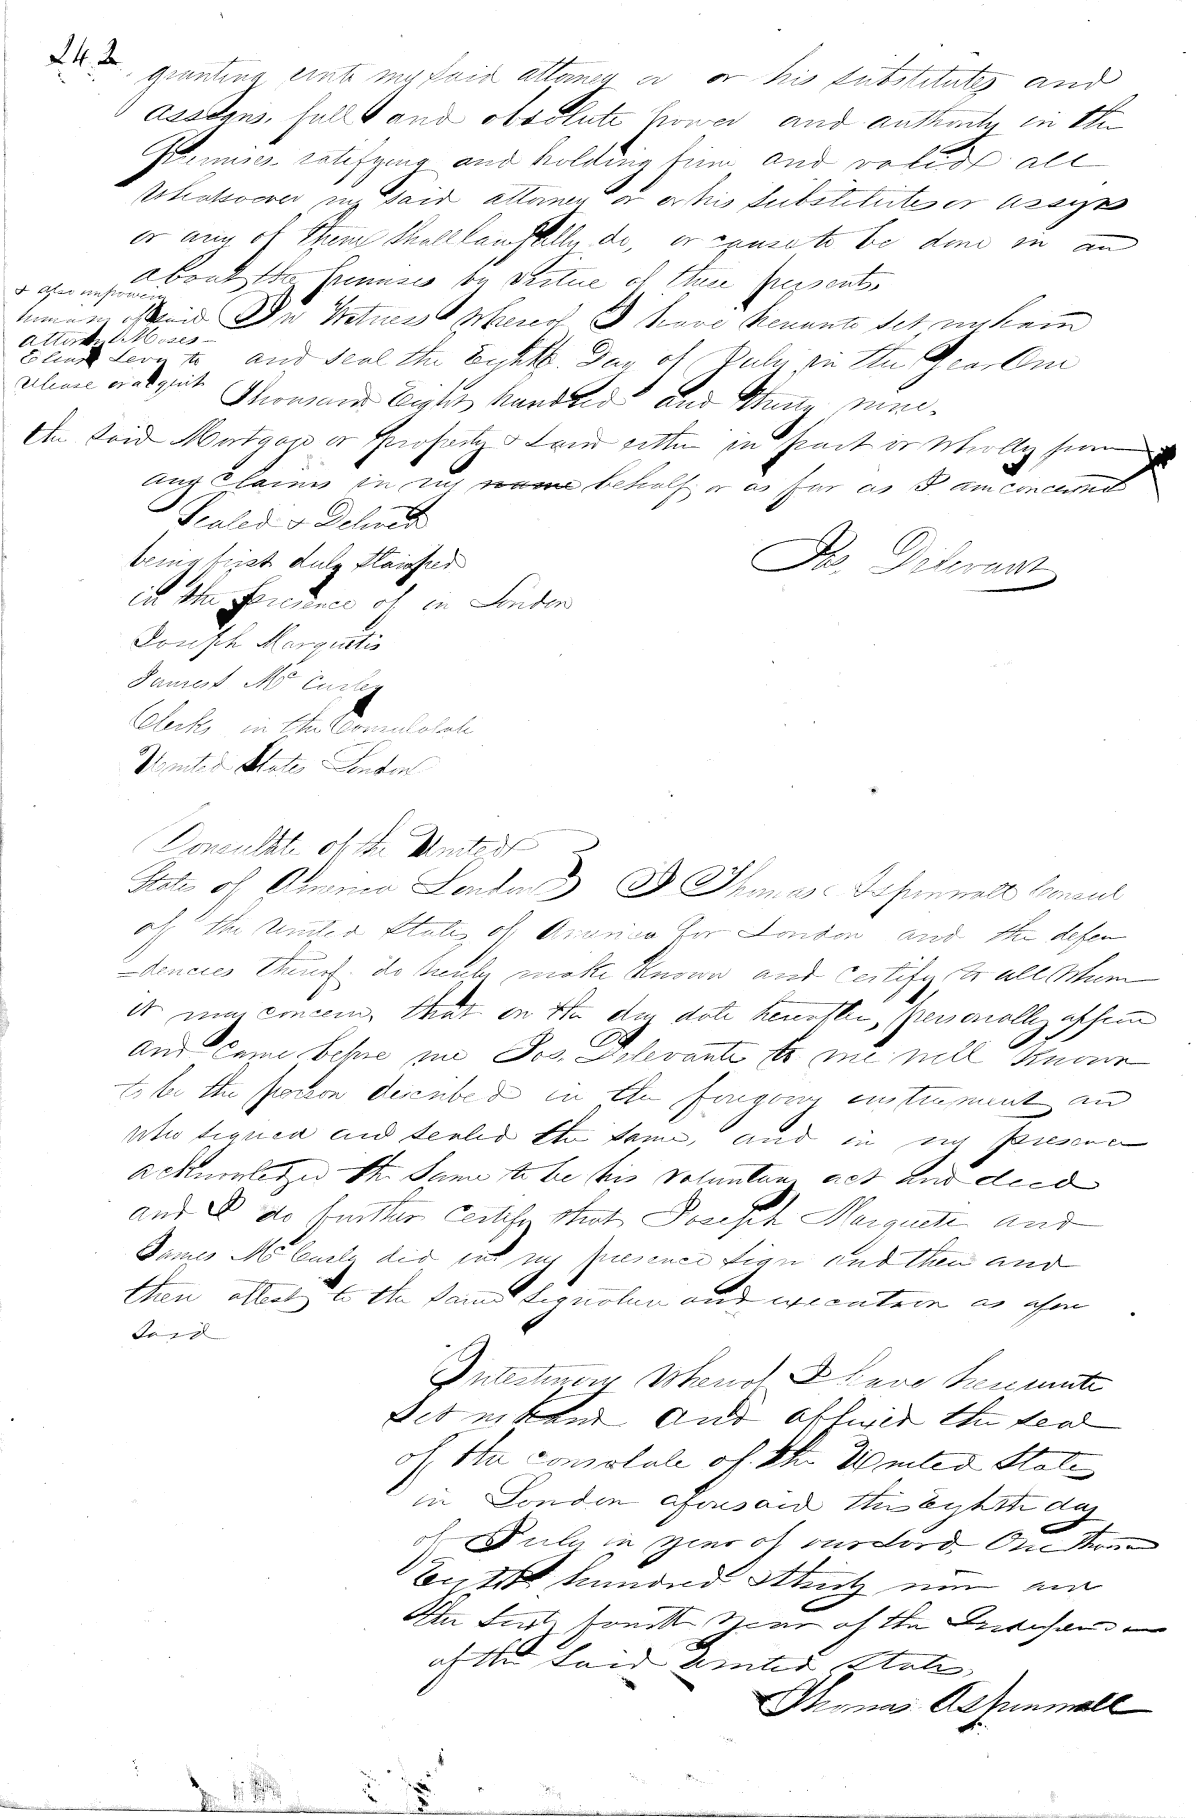 242
granting unto my said attorney or or his substitutes and
assigns. full and absolute power and authority in the
Premises ratifying and holding firm and valid all
Whatsoever my said attorney or or his Substitutes or assigns
or any of them Shall lawfully do, or cause to be done in an
about the premises by virtue of these presents.
& also empowering
said
attorney Moses
Eleias Levy to
release or acquit
In Witness Whereof I have hereunto Set my hand
and seal the Eighth Day of July in the Year One
Thousand Eight hundred and thirty nine.
the said Mortgage or property & Land either in part or Wholly from
any claims in my name behalf or as far as I am concerned
Sealed & Delivered
being first duly Stamped
in the presence of in London
Joseph Marquetis
James McCurley
Clerks in the Consulalate
United States London
Jos. Delevant
Consulate of the United
States of America London } I Thomas Aspinwall Consul
of the United States of America for London and the depen
-dencies thereof. do hereby make known and certify to all Whom
it may concern, that on the day date hereafter, personally appear
and came before me Jos. Delevante to me well known
to be the person described in the foregoing instrument an
who signed and sealed the same, and in my presence
acknowledged the Same to be his voluntary act and deed
and I do further certify that Joseph Marquete and
James McCurly did in my presence sign and then and
then attest to the same signature and execution as afore
said
In testimony Whereof I have hereunto
Set my hand and affixed the seal
of the consulate of the United States
in London aforesaid this Eighth day
of July in year of our Lord, One thousan
Eight hundred & thirty nine and
the Sixty fourth year of the Independence
of the said United States.
Thomas Aspinwall